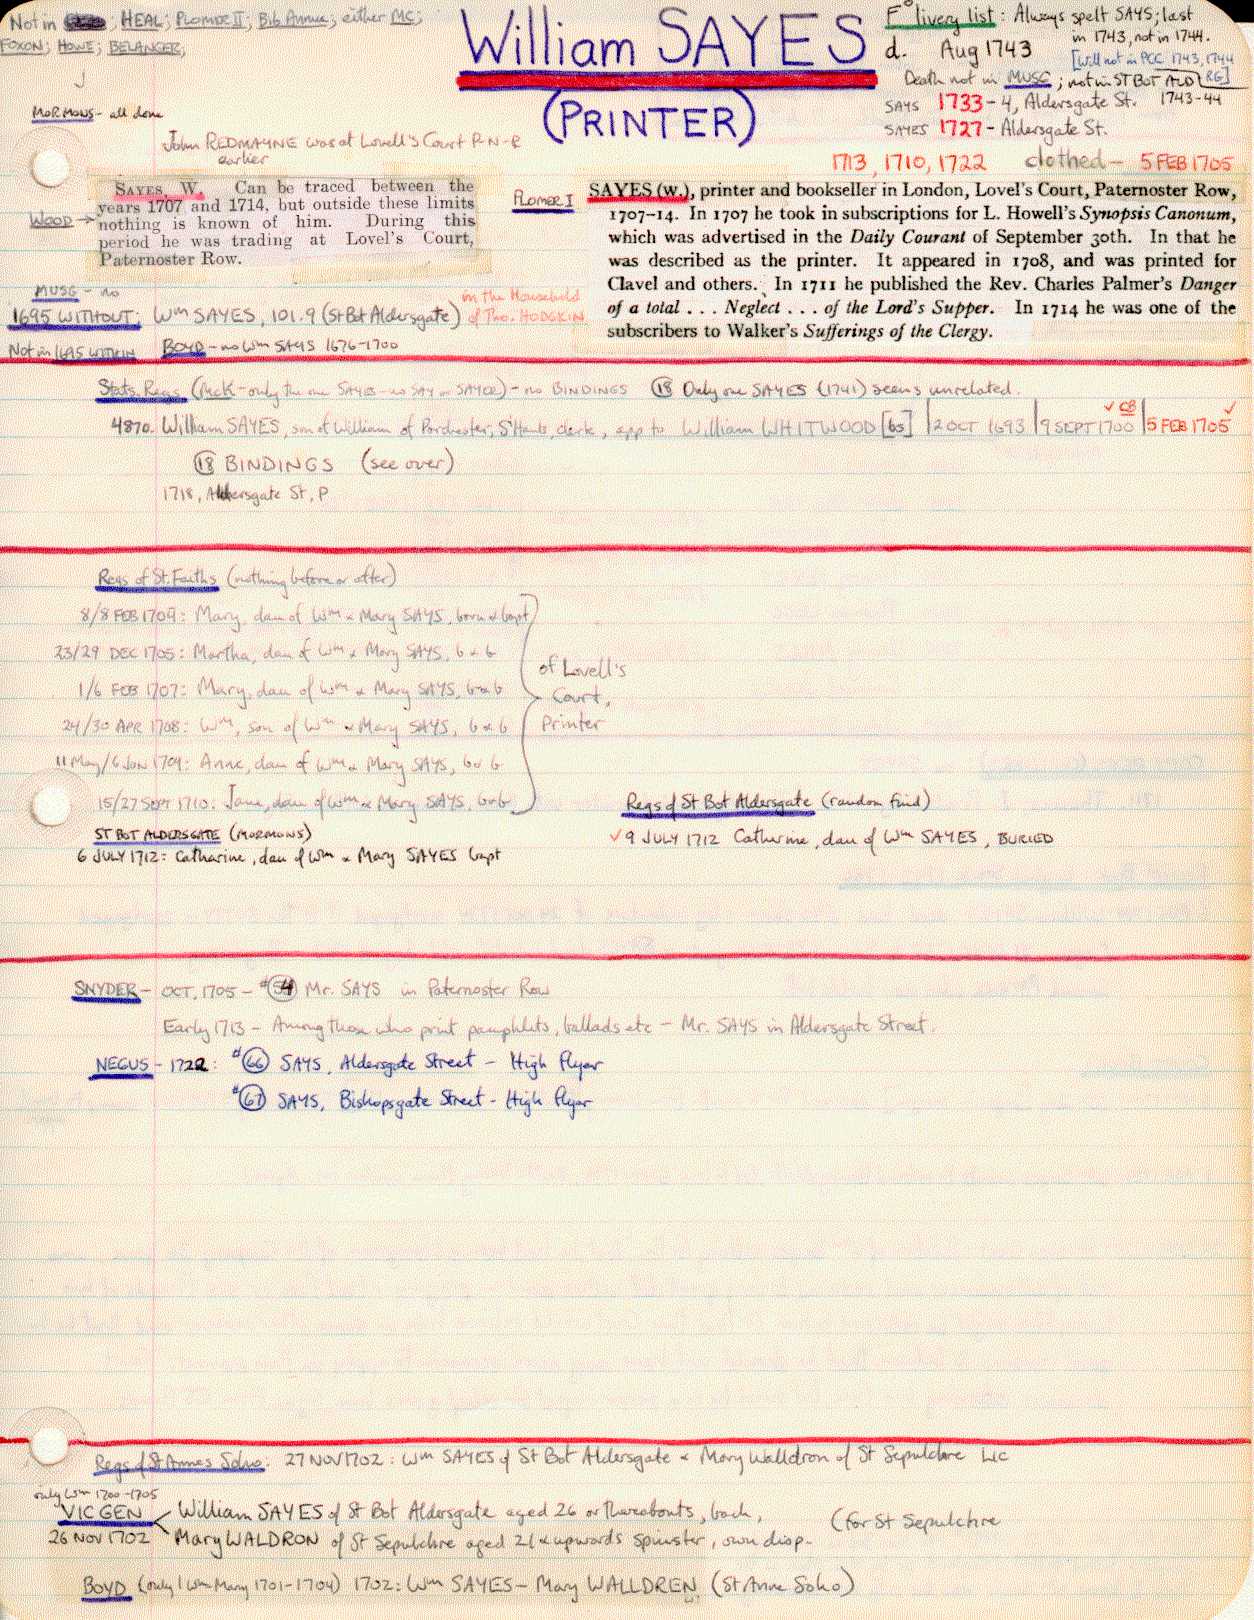 Not in ; HEAL; PLOMER II; Bib Annue; either MC;
FOXON; HOWE; BELANGER;
MORMONS - all done
William SAYES
(PRINTER)
F° livery list: Always spelt SAYS; last
in 1743, not in 1744.
d. Aug 1743
[Will not in PCC 1743, 1744
RG]
Death not in MUSG; not in ST BOT ALD
1743-44
SAYS 1733-4, Aldersgate St.
SAYES 1727 - Aldersgate St.
1713, 1710, 1722 clothed - 5 FEB 1705
John REDMAYNE was at Lovell's Court P-N-R
earlier
WOOD →
SAYES, W. Can be traced between the
years 1707 and 1714, but outside these limits
nothing is known of him. During this
period he was trading at Lovel's Court,
Paternoster Row.
PLOMER I
SAYES (W.), printer and bookseller in London, Lovel's Court, Paternoster Row,
1707-14. In 1707 he took in subscriptions for L. Howell's Synopsis Canonum,
which was advertised in the Daily Courant of September 30th. In that he
was described as the printer. It appeared in 1708, and was printed for
Clavel and others. In 1711 he published the Rev. Charles Palmer's Danger
of a total . . . Neglect . . . of the Lord's Supper. In 1714 he was one of the
subscribers to Walker's Sufferings of the Clergy.
MUSG - no
1695 WITHOUT: Wm SAYES, 101.9 (St Bot Aldersgate) in the Household
of Tho. HODGKIN
Not in 1695 WITHIN BOYD - no Wm SAYS 1676-1700
Stats. Regs (McK - only the one SAYES - no SAY or SAYCE) - no BINDINGS (18) Only one SAYES (1741) seems unrelated.
4870. William SAYES, son of William of Porchester, S'Hants, clerk, app to William WHITWOOD [bs] | 2 OCT 1693 | 9 SEPT 1700 | 5 FEB 1705
✓ CB ✓
(18) BINDINGS (see over)
1718, Aldersgate St, P
Regs of St. Faiths (nothing before or after)
8/8 FEB 1704: Mary, dau of Wm & Mary SAYS, born & bapt
23/29 DEC 1705: Martha, dau of Wm & Mary SAYS, b & b
1/6 FEB 1707: Mary, dau of Wm & Mary SAYS, b & b
24/30 APR 1708: Wm, son of Wm & Mary SAYS, b & b
11 May/6 Jun 1709: Anne, dau of Wm & Mary SAYS, b & b
15/27 SEPT 1710: Jane, dau of Wm & Mary SAYS, b & b
of Lovell's
Court,
Printer
ST BOT ALDERSGATE (MORMONS)
6 JULY 1712: Catharine, dau of Wm & Mary SAYES bapt
Regs of St Bot Aldersgate (random find)
✓ 9 JULY 1712 Catherine, dau of Wm SAYES, BURIED
SNYDER - OCT, 1705 - #(54) Mr. SAYS in Paternoster Row
Early 1713 - Among those who print pamphlets, ballads etc - Mr. SAYS in Aldersgate Street.
NEGUS - 1722: #(66) SAYS, Aldersgate Street - High Flyer
#(67) SAYS, Bishopsgate Street - High Flyer
Regs of St Annes Soho: 27 NOV 1702: Wm SAYES of St Bot Aldersgate & Mary Walldron of St Sepulchre Lic
only Wm 1700-1705
VIC GEN William SAYES of St Bot Aldersgate aged 26 or thereabouts, bach,
26 NOV 1702 Mary WALDRON of St Sepulchre aged 21 & upwards spinster, own disp.
(for St Sepulchre
BOYD (only 1 Wm Mary 1701-1704) 1702: Wm SAYES - Mary WALLDREN (St Anne Soho)